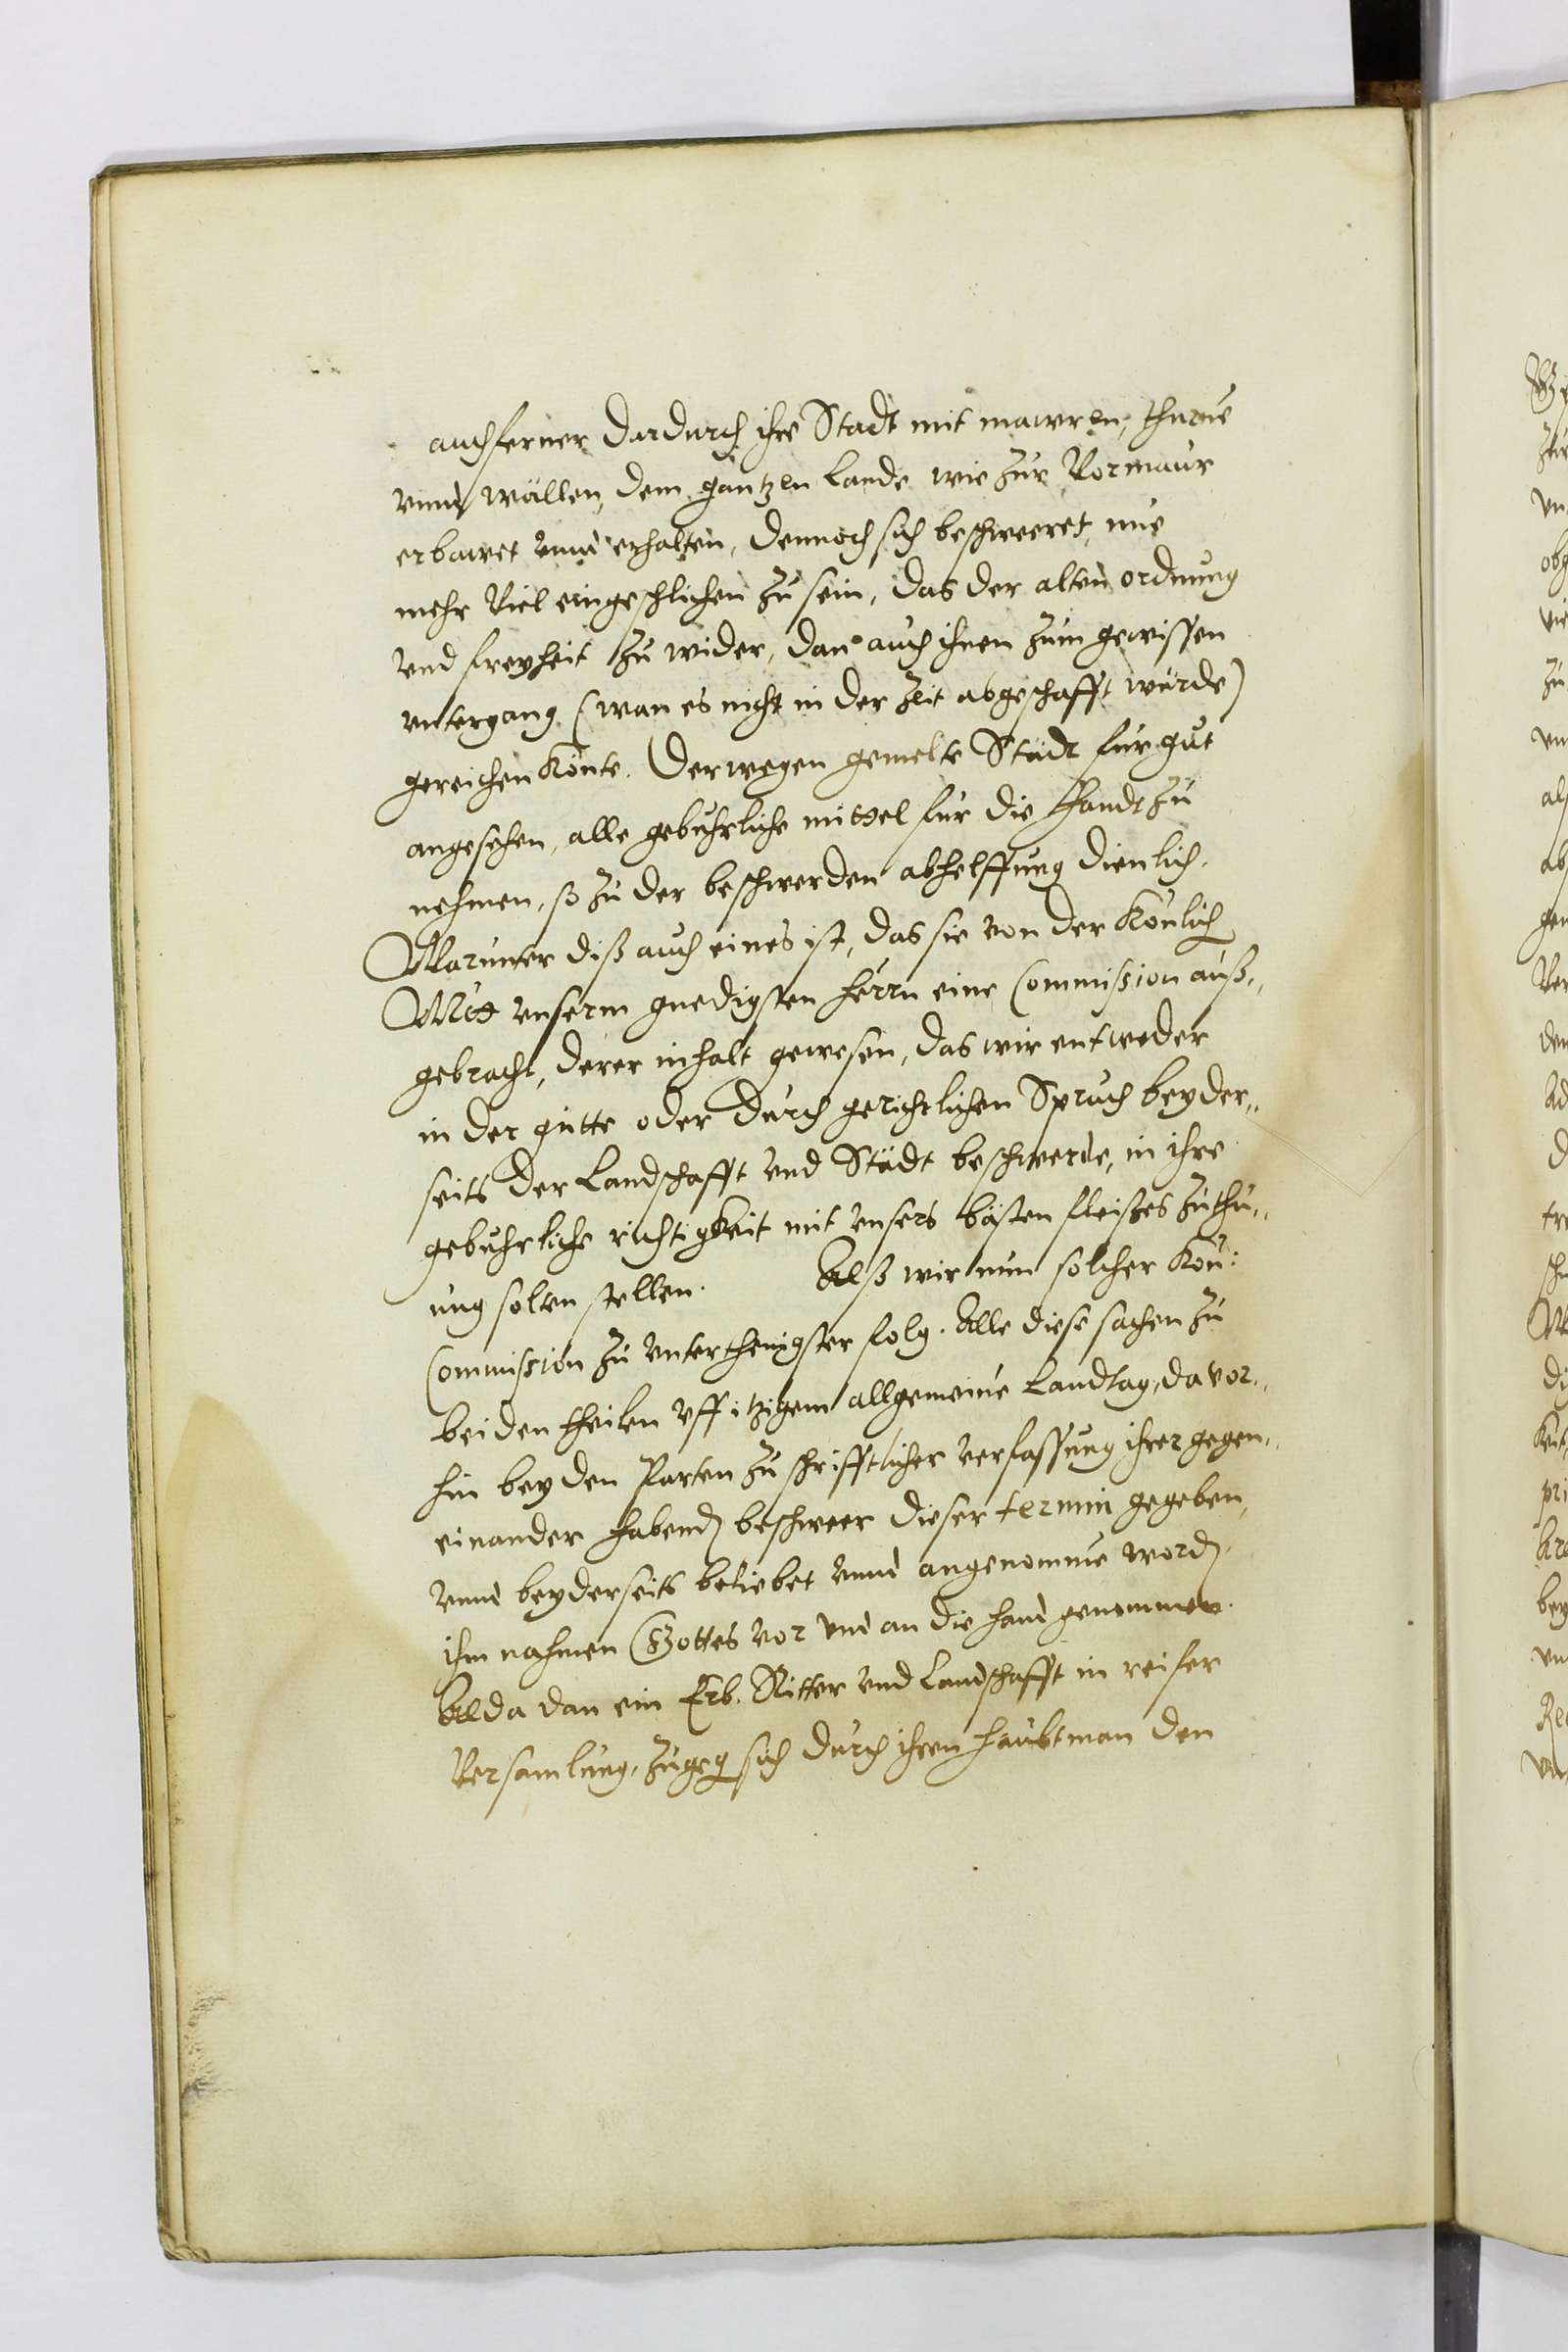 auch ferner dardurch ihre Stadt mit mawren, thurme
vnnd wällen, dem gantzen Lande wie zur Vormaur
erbawet vnnd erhalten, dennoch sich beschweeret, nue
mehr Viel eingeschlichen zu sein, das der alten ordnung
vnd freyheit zu wider, dan auch ihnen zum gewissen
vntergang (wan es nicht in der Zeit abgeschafft würde)
gereichen könte. Derwegen gemelte Städt für gut
angesehen, alle gebuhrliche mittel für die Handt zu
nehmen, so zu der beschwerden abhelffung dienlich.
Warunter diß auch eines ist, das sie von der Könlich
Mtt vnserm gnedigsten herrn eine Commission auß„
gebracht, derer inhalt gewesen, das wir entweder
in der gütte oder durch gerichtlichen Spruch beyder„
seits der Landschafft vnd Städt beschwerde, in ihre
gebuhrliche richtigkeit mit vnsers bästen fleißes zuthu„
ung solten stellen. Alß wir nun solcher Kön:
Commission zu vnterthenigster folg. Alle diese sachen zu
beiden theilen vff itzigem allgemeine Landtag, da vor„
hin bey den Parten zu schrifftlicher verfassung ihrer gegen„
einander habend beschweer dieser termin gegeben,
vnnd beyderseits beliebet vnnd angenomme word
ihm nahmen Gottes vor vnd an die hand genommen.
Alda dan ein Erb. Ritter vnd Landschafft in reifer
Versamlung, zugeg sich durch ihren haubtman den